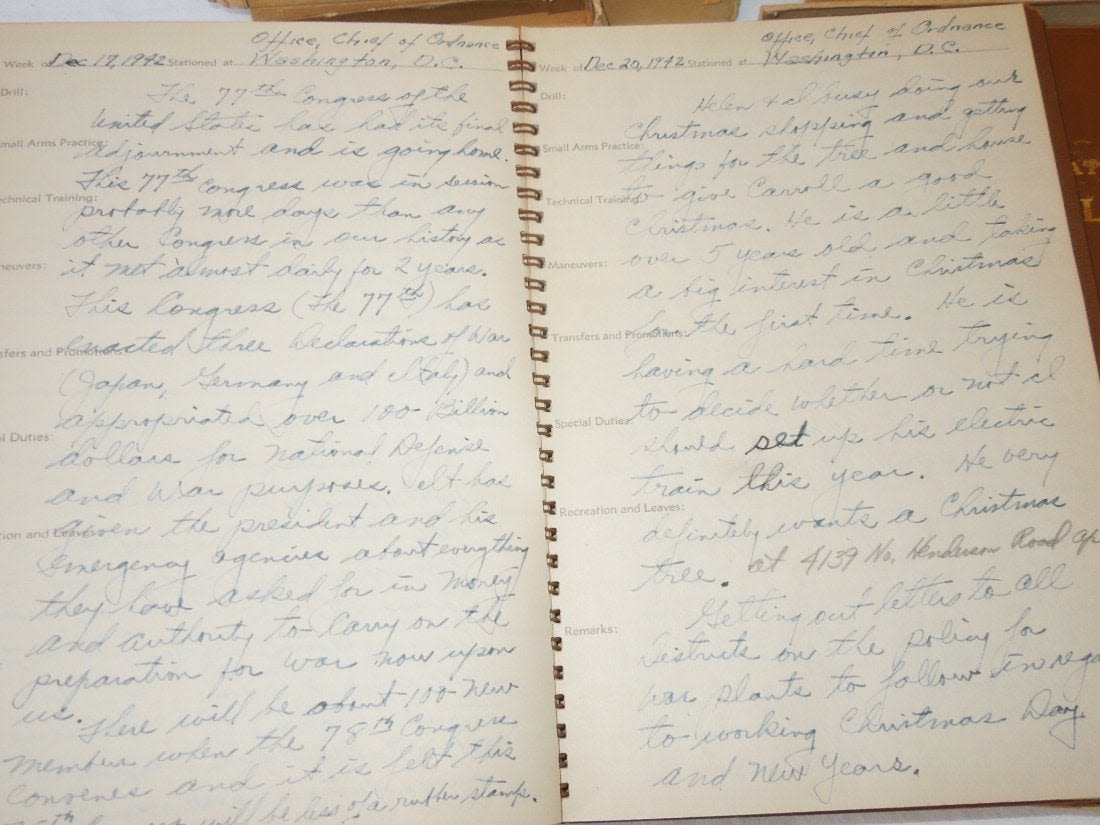 Office, Chief of Ordnance
Week of Dec 17, 1942 Stationed at Washington, D.C.
Drill:
The 77th Congress of the
United States has had its final
Small Arms Practice:
adjournment and is going home.
This 77th Congress was in session
Technical Training:
probably more days than any
other Congress in our history as
Maneuvers:
it met almost daily for 2 years.
This Congress (The 77th) has
enacted three Declarations of War
sfers and Promotions:
(Japan, Germany and Italy) and
appropriated over 100 Billion
l Duties:
dollars for National Defense
and War purposes. It has
tion and Leaves:
given the president and his
emergency agencies about everything
they have asked for in money
and authority to carry on the
preparation for war now upon
us.
There will be about 100 New
members when the 78th Congress
convenes and it is felt this
will be less of a rubber stamp.
Office, Chief of Ordnance
Week of Dec 20, 1942 Stationed at Washington, D.C.
Drill:
Helen & I busy doing our
Christmas shopping and getting
Small Arms Practice:
things for the tree and house
Technical Training:
to give Carroll a good
Christmas. He is a little
over 5 years old and taking
Maneuvers:
a big interest in Christmas
for the first time. He is
Transfers and Promotions:
having a hard time trying
to decide whether or not I
Special Duties:
should set up his electric
train this year. He very
Recreation and Leaves:
definitely wants a Christmas
tree. at 4139 No. Henderson Road ap
Getting out letters to all
Remarks:
Districts on the policy for
war plants to follow in rega
to working Christmas Day
and New Years.